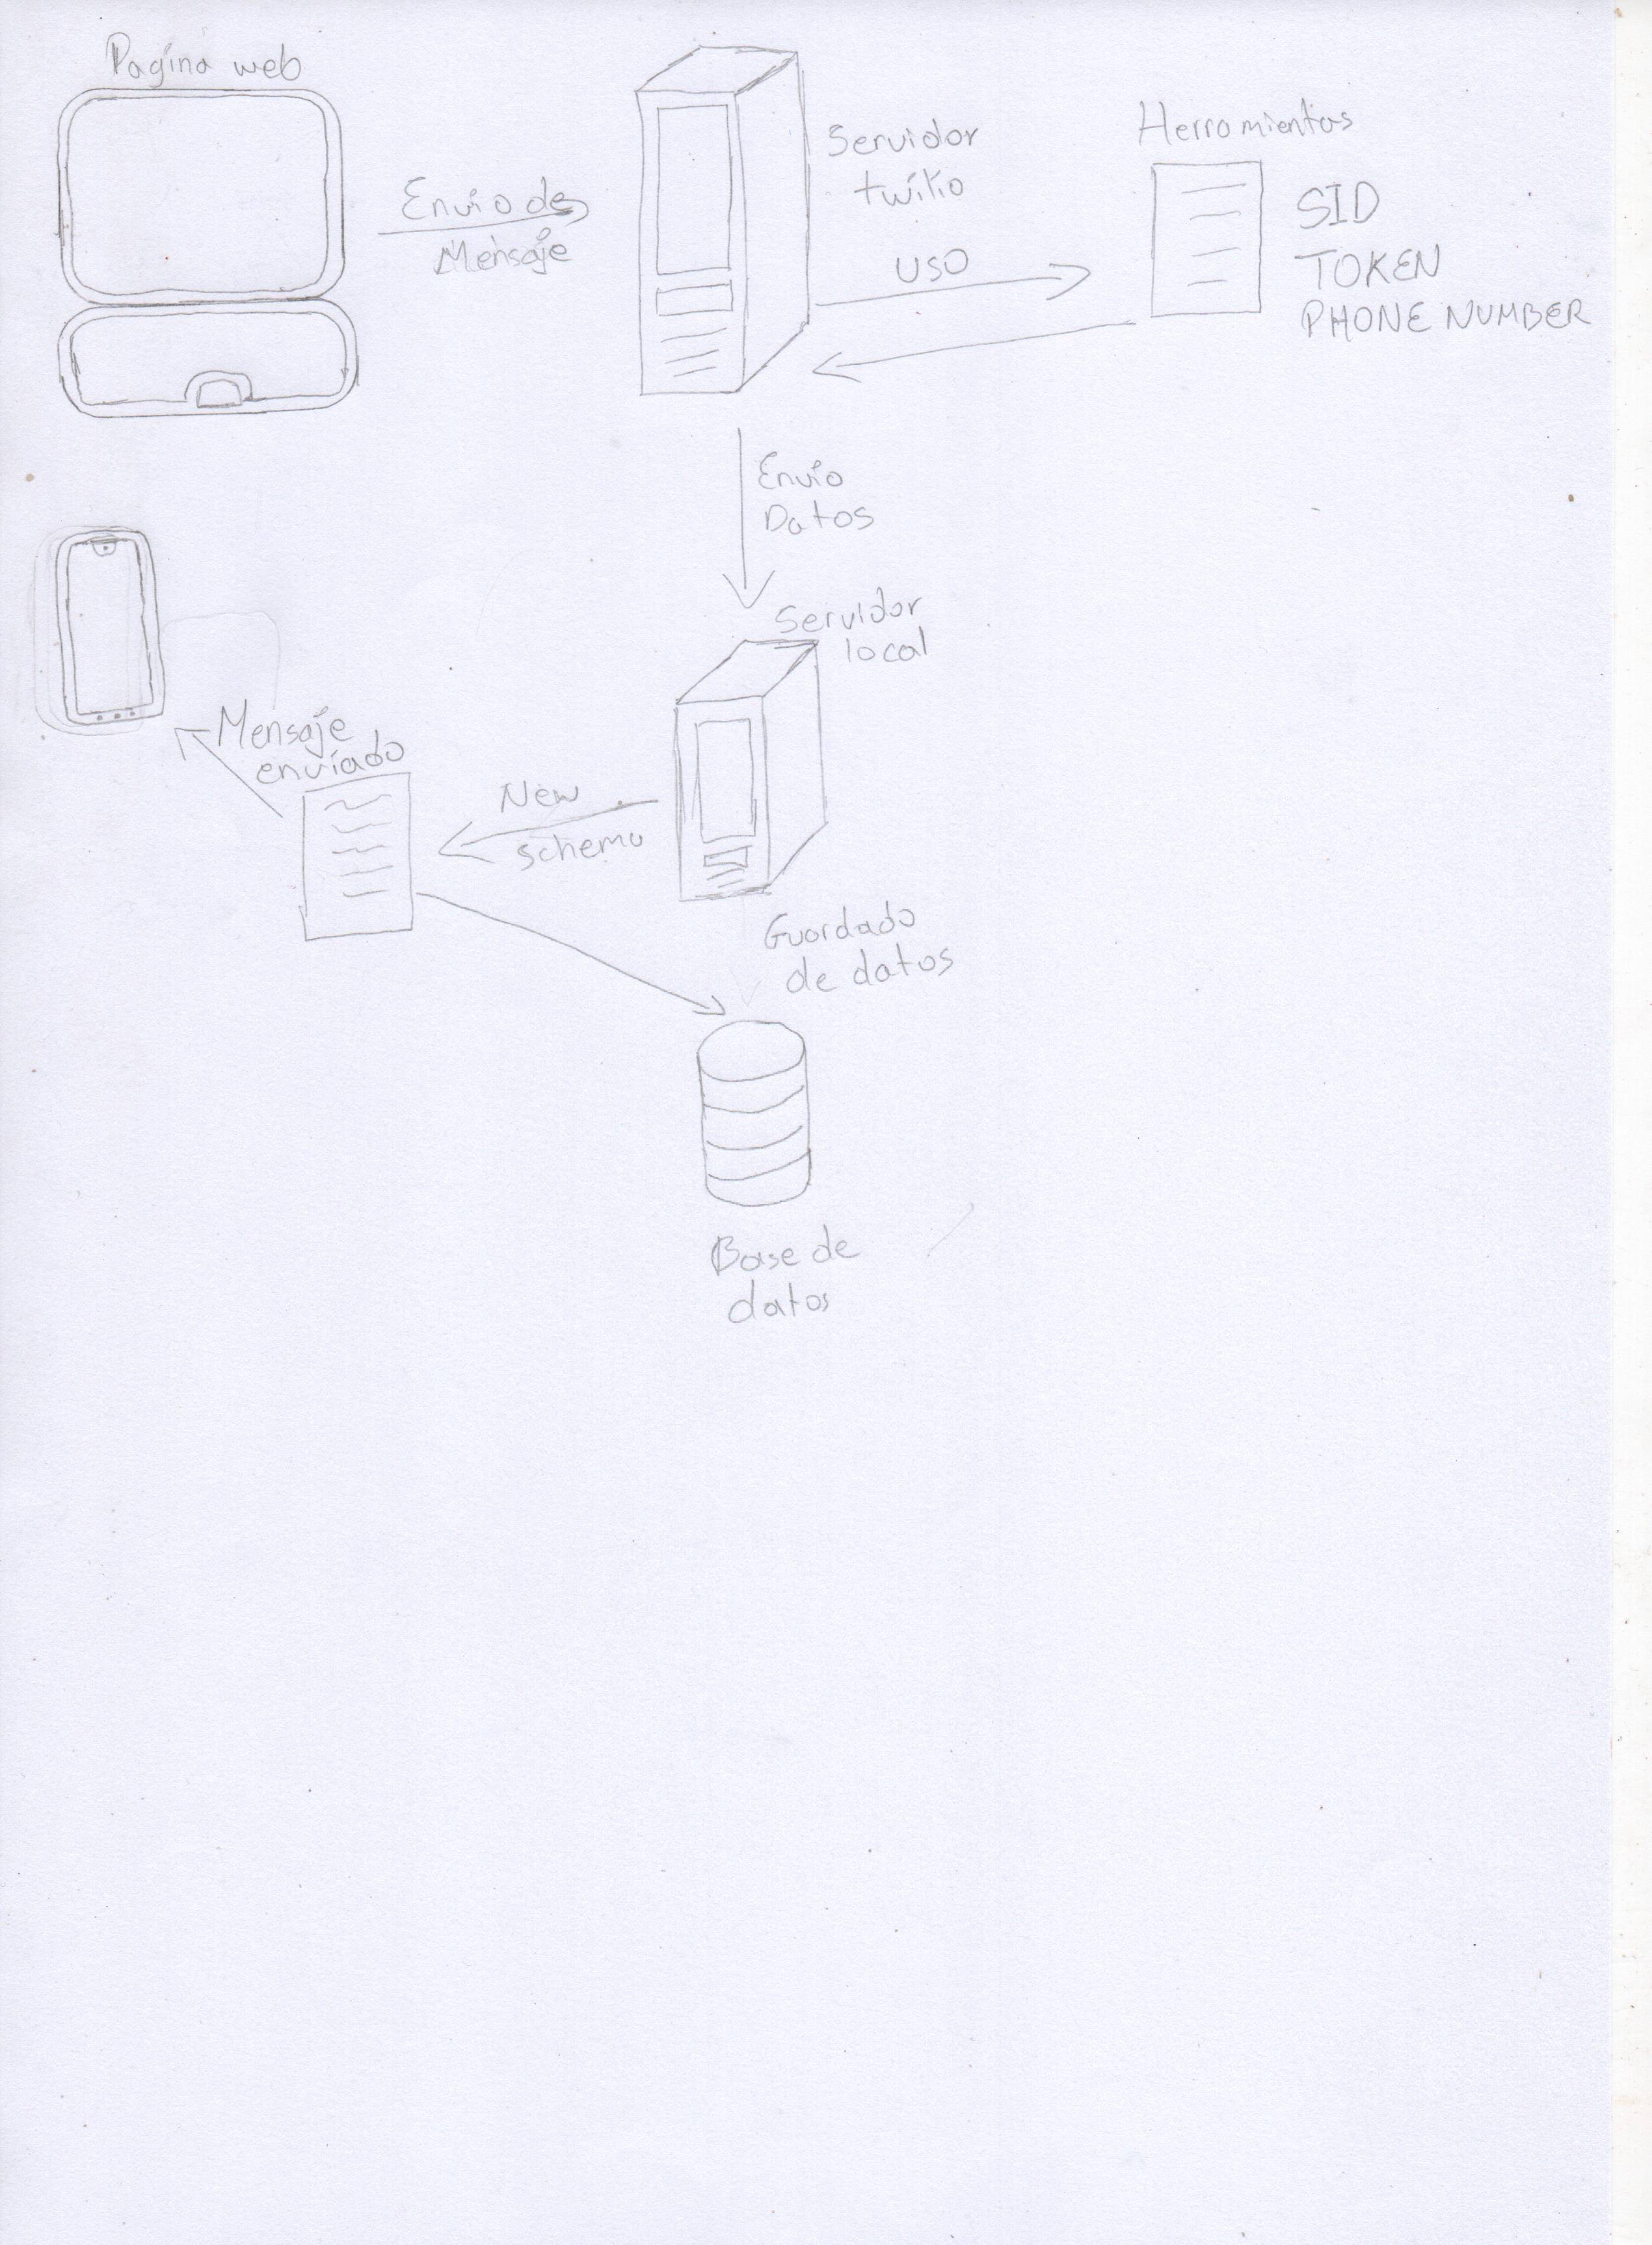 Pagina web
Envio de
Mensaje
Servidor
twilio
USO
Herramientas
SID
TOKEN
PHONE NUMBER
Envio
Datos
Servidor
local
Mensaje
enviado
New
schema
Guardado
de datos
Base de
datos